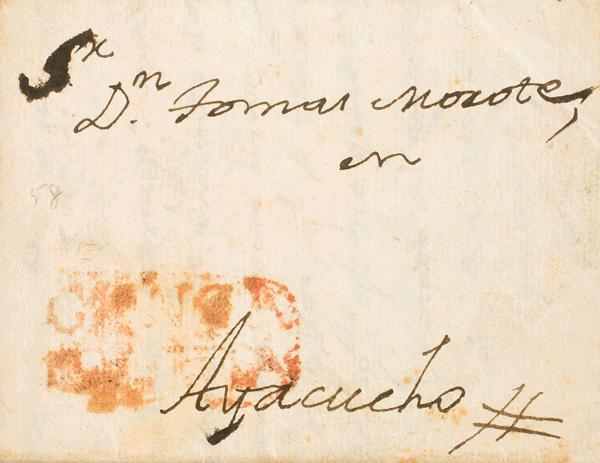 Sr
Dn. Tomas Morote,
en
58
Ayacucho